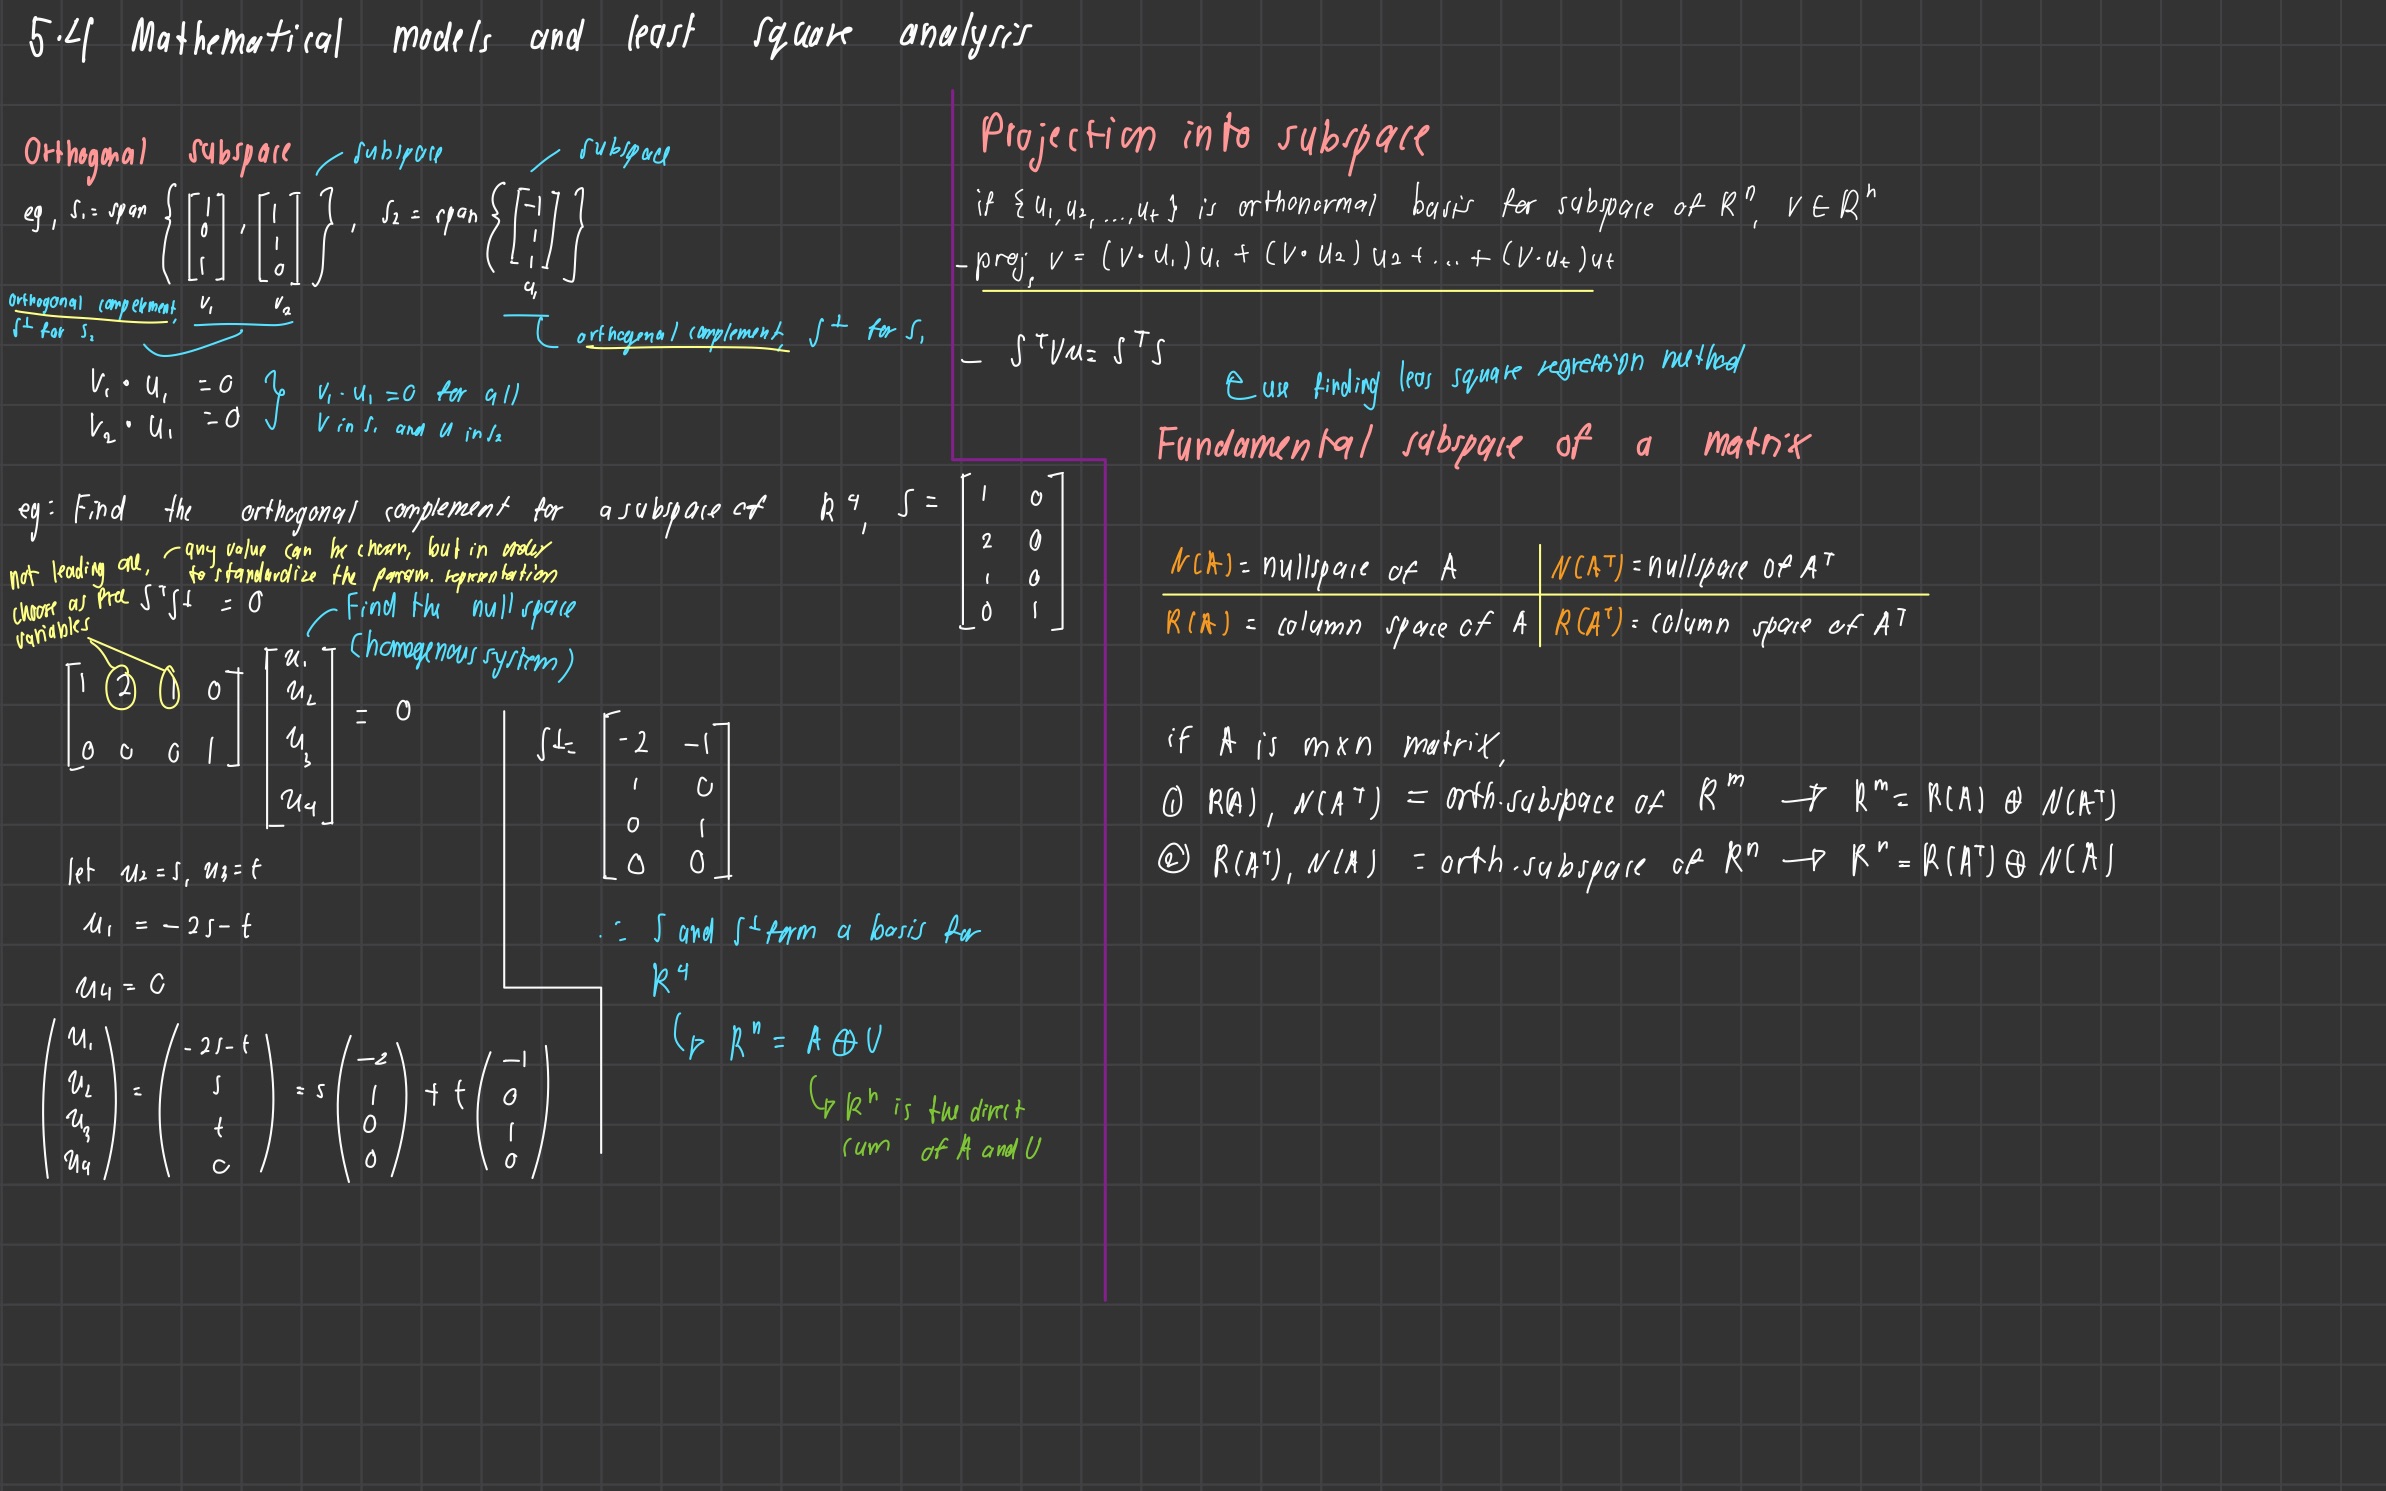 5.4 Mathematical models and least square analysis
Orthogonal subspace
subspace
subspace
eg, S₁ = span { [1 0 1], [1 1 0] }, S₂ = span { [-1 1 1] }
v₁ v₂
u₁
orthogonal complement,
S⊥ for S₂
orthogonal complement, S⊥ for S₁
V₁ • u₁ = 0
V₂ • u₁ = 0
v₁ · u₁ = 0 for all
V in S₁ and u in S₂
eg: Find the orthogonal complement for a subspace of R⁴, S = [1 0
2 0
1 0
0 1]
not leading one,
choose as free
variables
any value can be chosen, but in order
to standardize the param. representation
SᵀS⊥ = 0
Find the null space
(homogenous system)
[1 2 1 0
0 0 0 1] [u₁ u₂ u₃ u₄] = 0
let u₂ = s, u₃ = t
u₁ = -2s - t
u₄ = 0
(u₁ u₂ u₃ u₄) = (-2s-t s t 0) = s(-2 1 0 0) + t(-1 0 1 0)
S⊥ = [-2 -1
1 0
0 1
0 0]
∴ S and S⊥ form a basis for
R⁴
↳ Rⁿ = A ⊕ U
↳ Rⁿ is the direct
sum of A and U
Projection into subspace
if {u₁, u₂, ..., ut} is orthonormal basis for subspace of Rⁿ, v ∈ Rⁿ
- projₛ v = (v • u₁) u₁ + (v • u₂) u₂ + ... + (v • ut) ut
- SᵀVu = SᵀS
use finding leas square regression method
Fundamental subspace of a matrix
N(A) = nullspace of A
N(Aᵀ) = nullspace of Aᵀ
R(A) = column space of A
R(Aᵀ) = column space of Aᵀ
if A is m×n matrix,
① R(A), N(Aᵀ) = orth. subspace of Rᵐ → Rᵐ = R(A) ⊕ N(Aᵀ)
② R(Aᵀ), N(A) = orth. subspace of Rⁿ → Rⁿ = R(Aᵀ) ⊕ N(A)